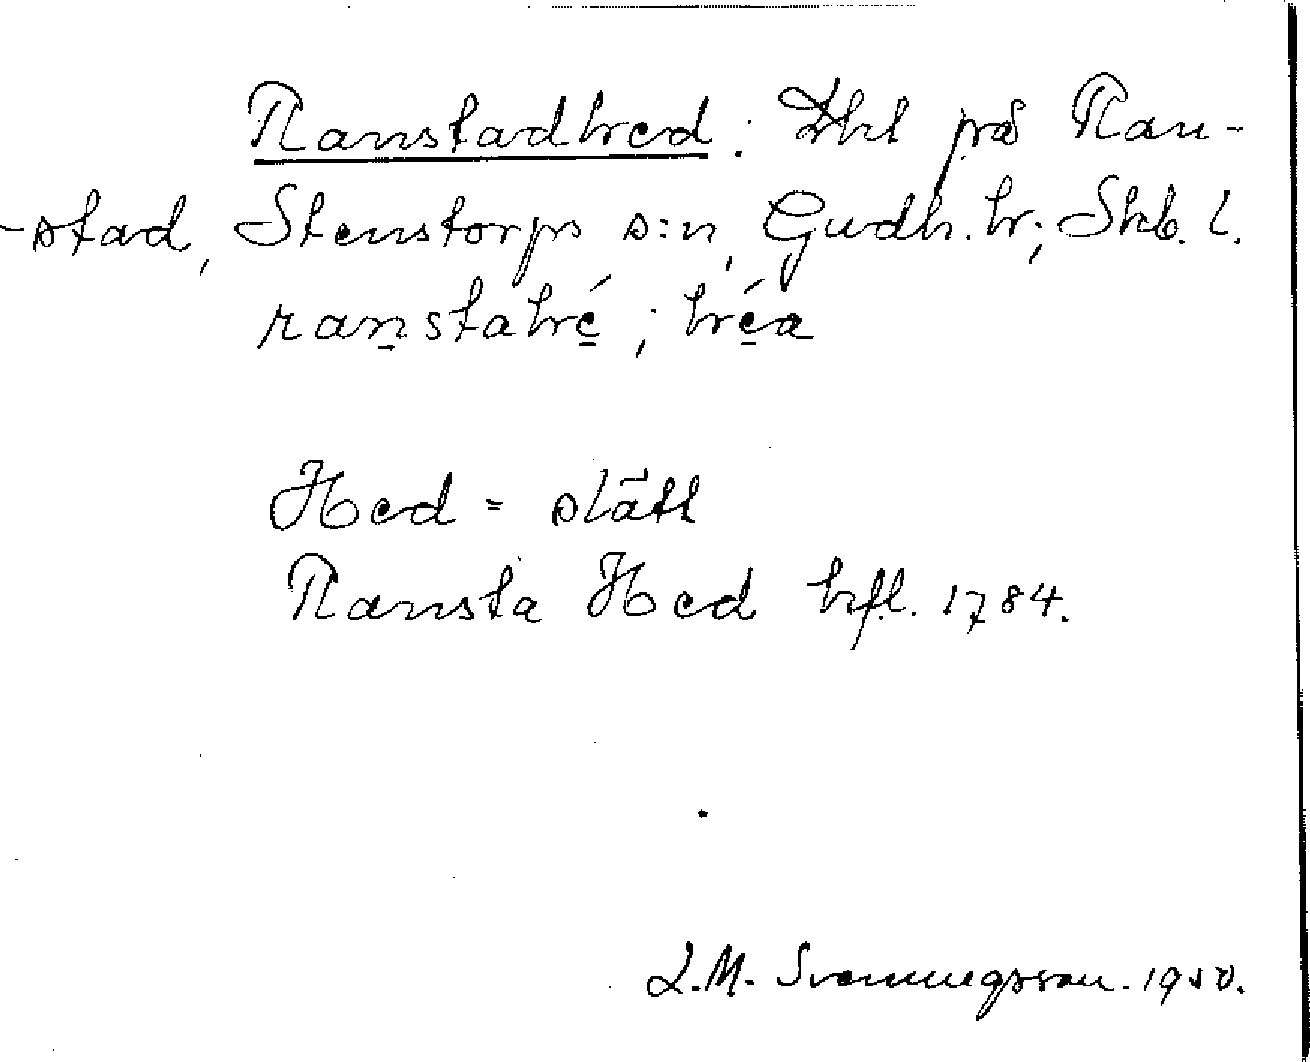 Ranstadhed: Tkt på Ran-
-stad, Stenstorps s:n, Gudh. hr; Skb. l.
ranstahé; héa
Hed = slätt
Ransta Hed hfl. 1784.
L.M. Svenungsson. 1950.